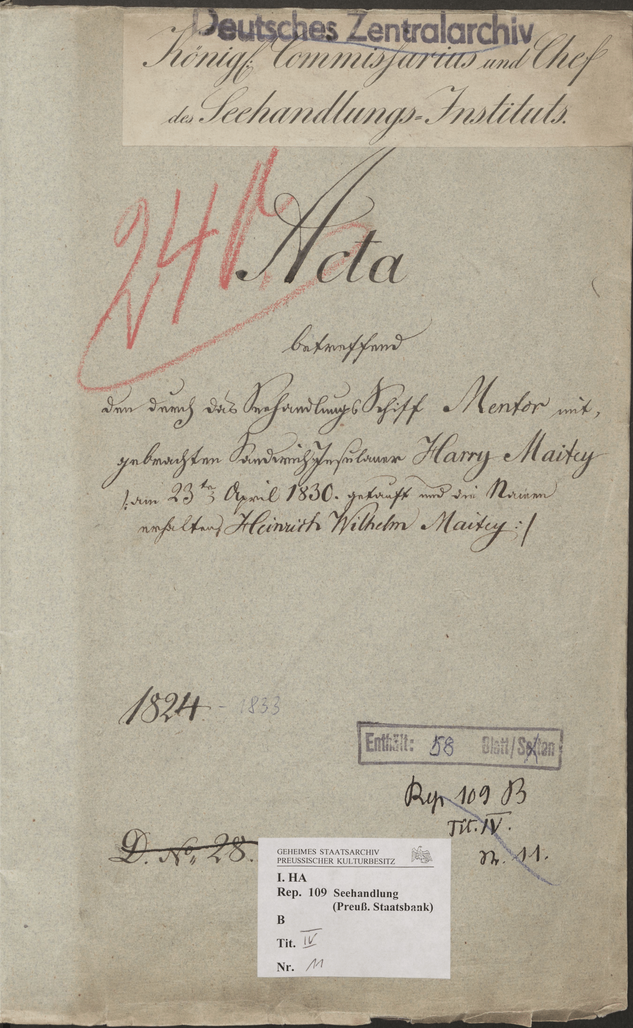 Deutsches Zentralarchiv
Königl: Commissarius und Chef
des Seehandlungs=Instituts.
Acta
betreffend
den durch das Seehandlungs Schiff Mentor mit,
gebrachten Sandwich Insulaner Harry Maitey
/: am 23ten April 1830. getauft und die Namen
erhalten Heinrich Wilhelm Maitey :/
1824 - 1833
Enthält: 58 Blatt/Seiten
Rep 109 B
Tit. IV.
Nr. 11.
D. No. 28.
GEHEIMES STAATSARCHIV
PREUSSISCHER KULTURBESITZ
I. HA
Rep. 109 Seehandlung
(Preuß. Staatsbank)
B
Tit. IV
Nr. 11